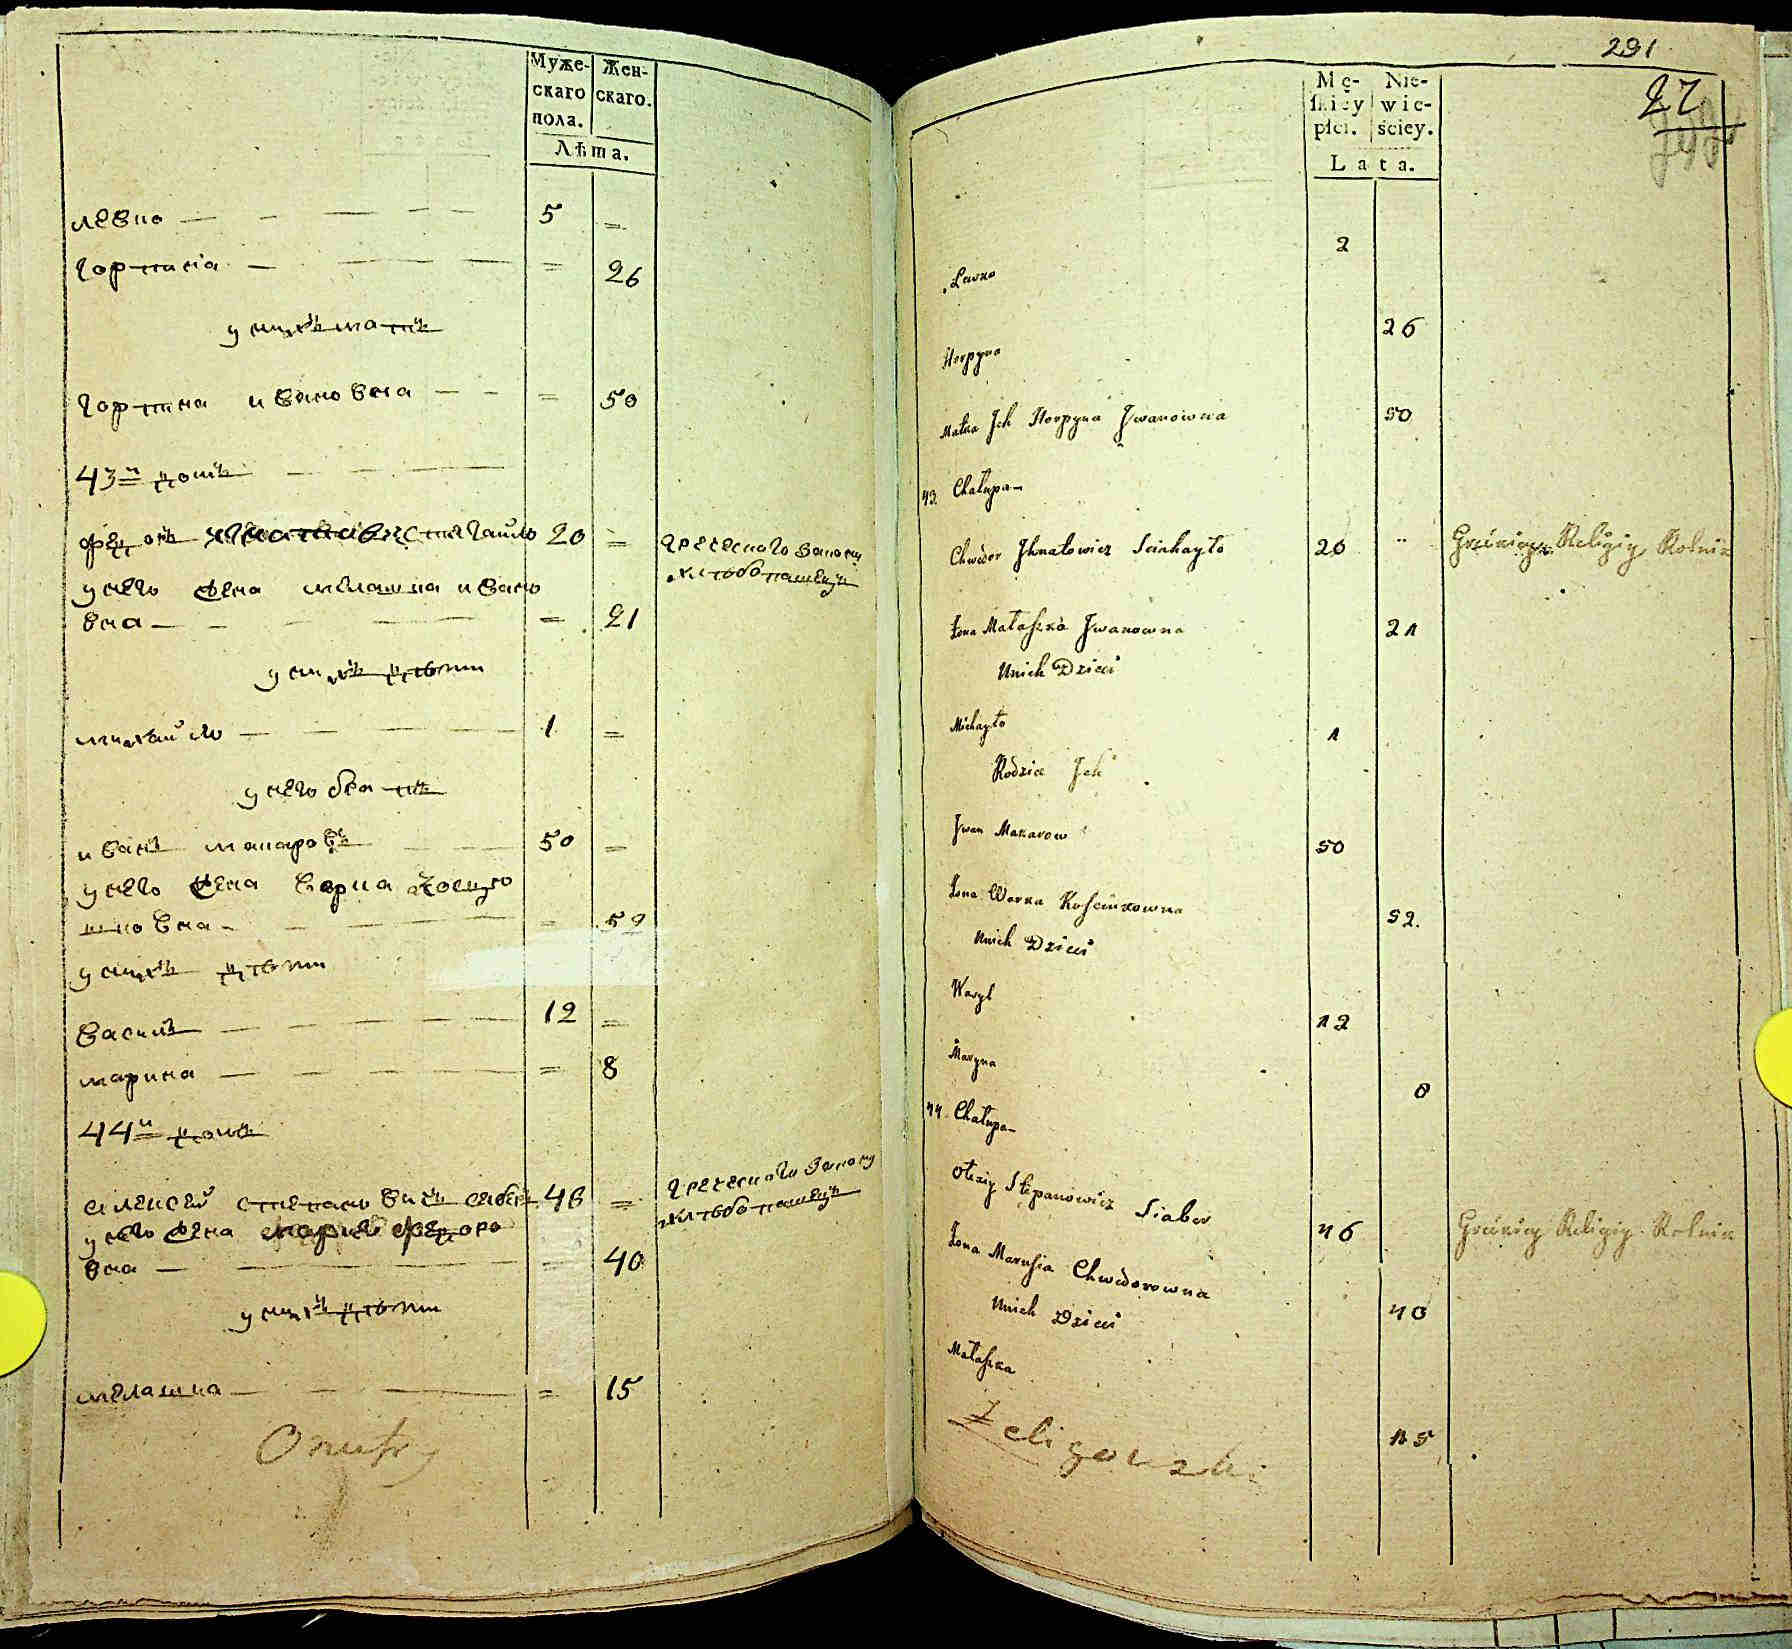 Муже-
скаго
пола.
Жен-
скаго.
Лѣта.
левко — 5 =
горпина — = 26
у нихъ мать
горпина ивановна — = 50
43й домъ
20 = греческого закону
хлѣбопашецъ
у него жена мелашка ивано
вна — = 21
у нихъ дѣти
михайло — 1 =
у него
иванъ макаровъ 50 =
у него жена варка
вна — = 52
у нихъ дѣти
василь — 12 =
марина — = 8
44й домъ
алексей степановичъ 46 = греческого закону
хлѣбопашецъ
у него жена федоро
вна — = 40
у нихъ дѣти
мелашка — = 15
Onufry
291
27
Mę-
skiey
płci.
Nie-
wie-
ściey.
Lata.
Lewko 2
Horpyna 26
Matka Jch Horpyna Jwanowna 50
43. Chałupa
Chwedor Jhnatowicz 20 " Religiy Rolnik
Żona Małaszka Jwanowna 21
Unich Dzieci
Michayło 1
Rodzice Jch
Jwan Makarow 50
Żona Warka 52.
Unich Dzieci
Wasyl 12
Maryna 8
44. Chałupa
Olexiy Stepanowicz Siaber 46 Religiy Rolnik
Żona Marusia Chwedorowna 40
Unich Dzieci
Małaszka 15
Zeligowski